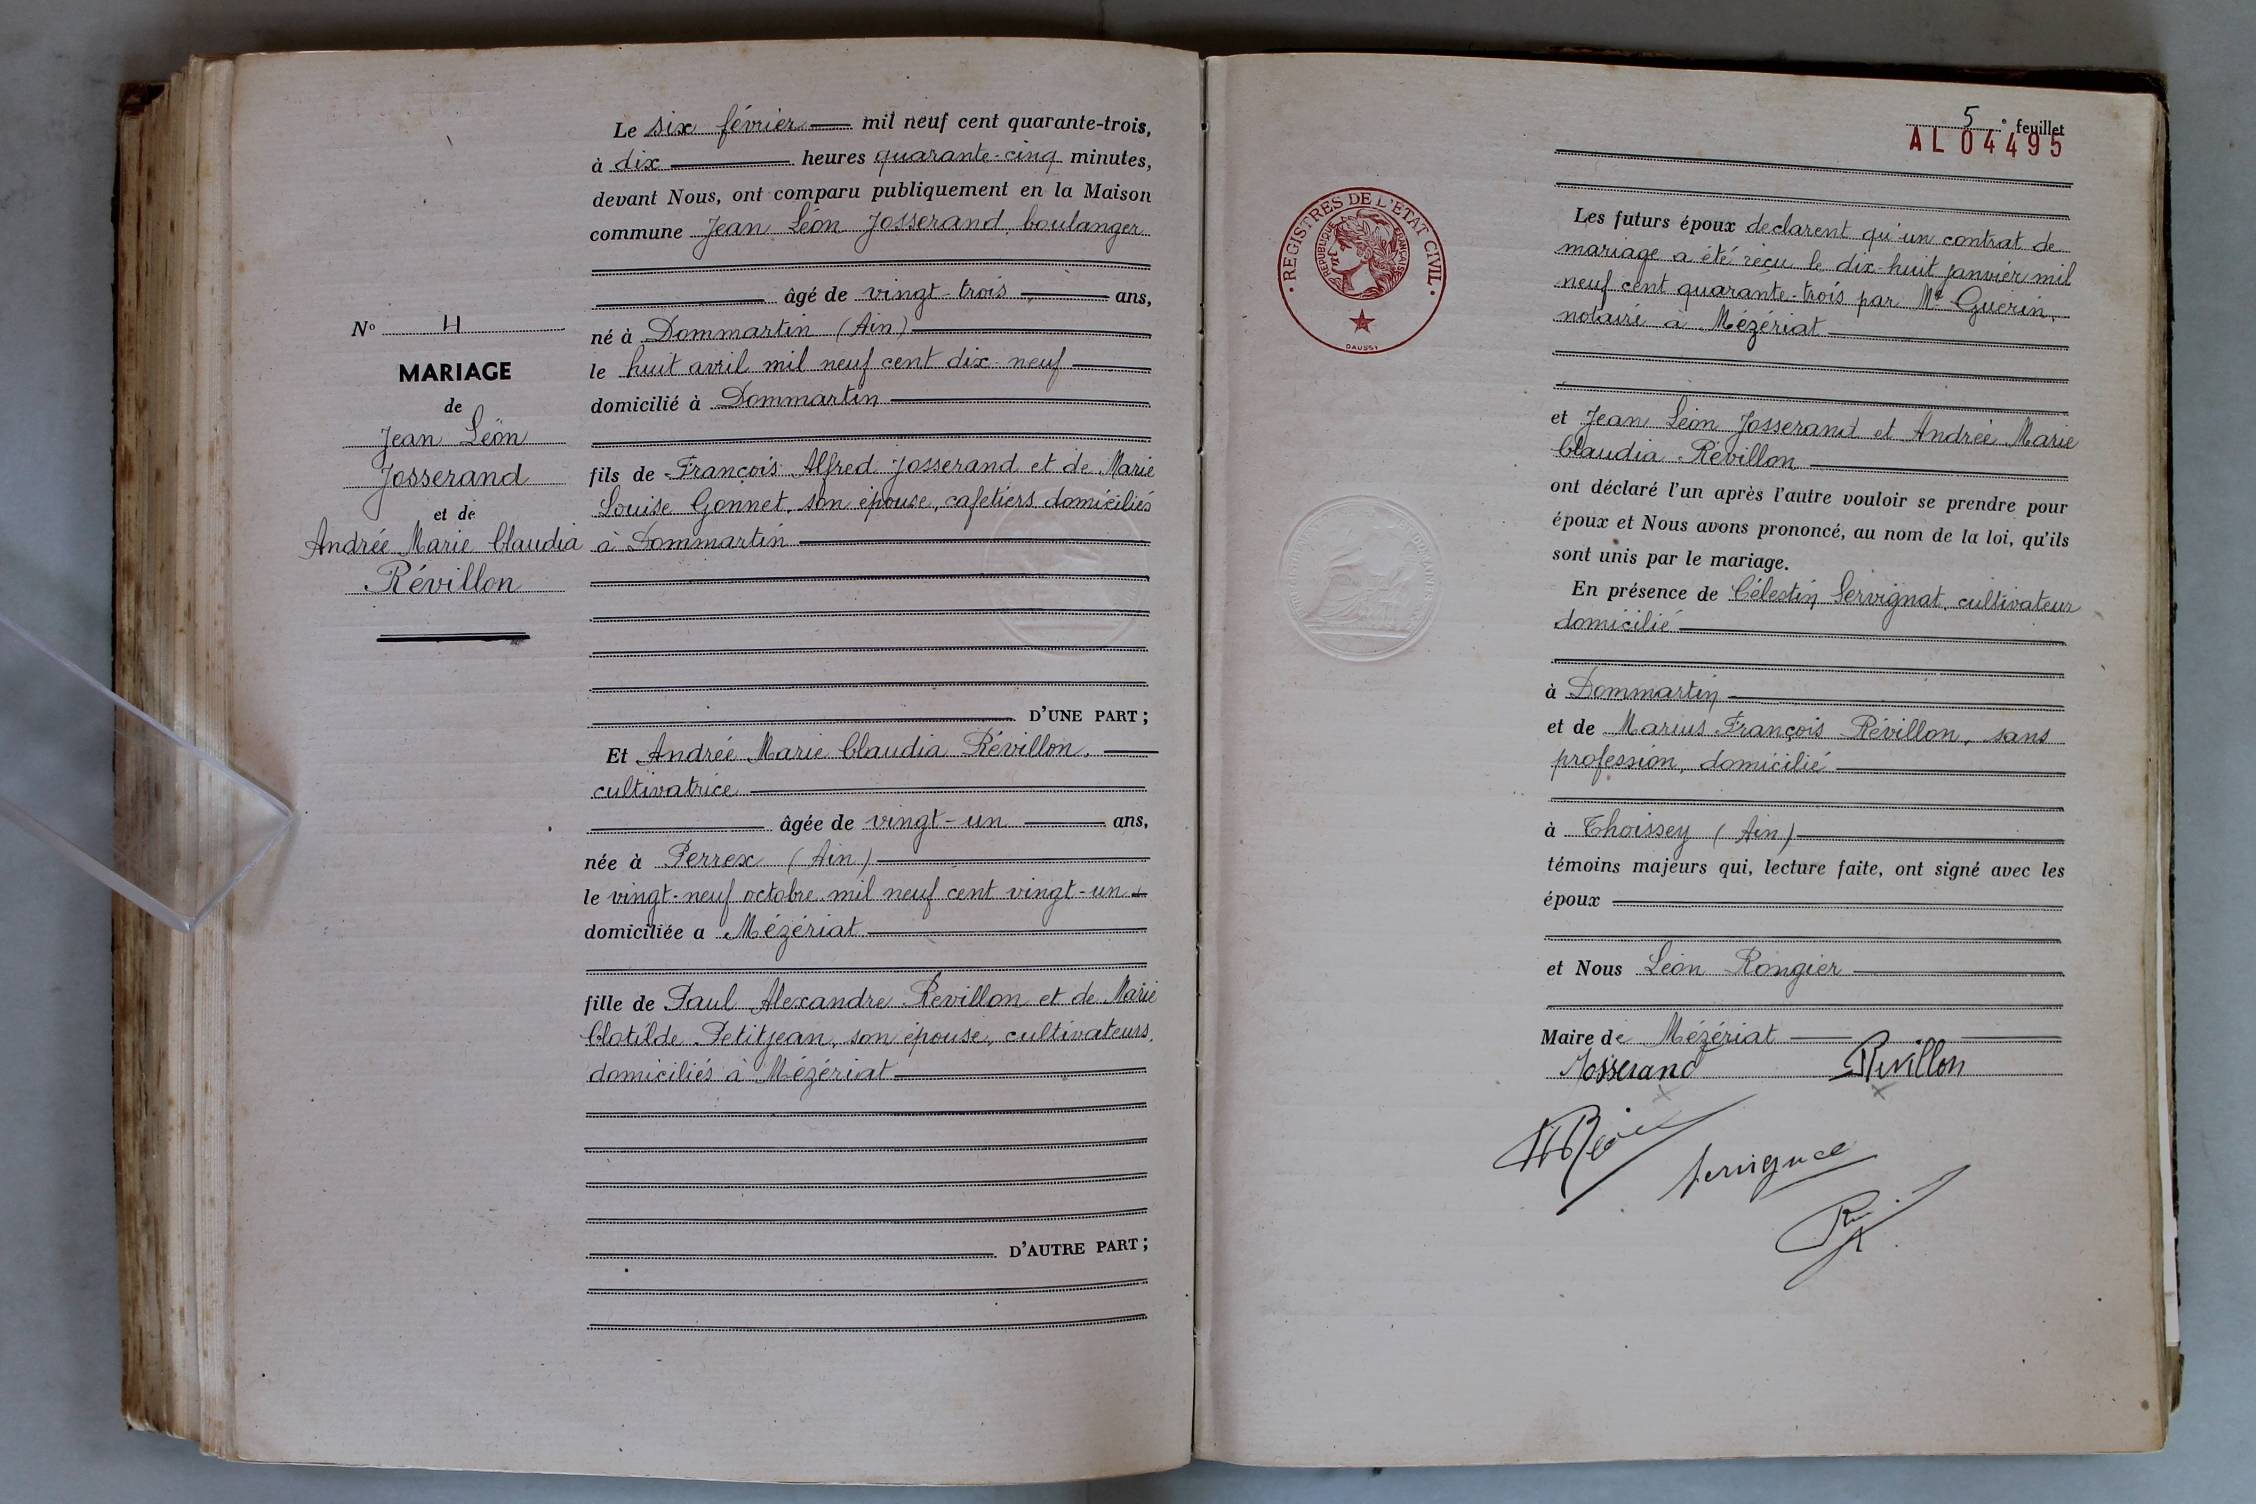 Le six février mil neuf cent quarante-trois,
à dix heures quarante-cinq minutes,
devant Nous, ont comparu publiquement en la Maison
commune Jean Léon Josserand, boulanger
âgé de vingt-trois ans,
né à Dommartin (Ain)
le huit avril mil neuf cent dix-neuf
domicilié à Dommartin
fils de François Alfred Josserand et de Marie
Louise Gonnet, son épouse, cafetiers domiciliés
à Dommartin
D'UNE PART;
Et Andrée Marie Claudia Révillon,
cultivatrice
âgée de vingt-un ans,
née à Perrex (Ain)
le vingt-neuf octobre mil neuf cent vingt-un
domiciliée a Mézériat
fille de Paul Alexandre Révillon et de Marie
Clotilde Petitjean, son épouse, cultivateurs,
domiciliés à Mézériat
D'AUTRE PART;
No 4
MARIAGE
de
Jean Léon
Josserand
et de
Andrée Marie Claudia
Révillon
5e feuillet
AL 04495
REGISTRES DE L'ETAT CIVIL
REPUBLIQUE FRANÇAISE
DAUSSY
Les futurs époux declarent qu'un contrat de
mariage a été reçu le dix-huit janvier mil
neuf cent quarante-trois par Me Guérin,
notaire à Mézériat
et Jean Léon Josserand et Andrée Marie
Claudia Révillon
ont déclaré l'un après l'autre vouloir se prendre pour
époux et Nous avons prononcé, au nom de la loi, qu'ils
sont unis par le mariage.
En présence de Célestin Servignat, cultivateur
domicilié
à Dommartin
et de Marius François Révillon, sans
profession, domicilié
à Thoissey (Ain)
témoins majeurs qui, lecture faite, ont signé avec les
époux
et Nous Léon Rongier
Maire de Mézériat
Josserand Révillon